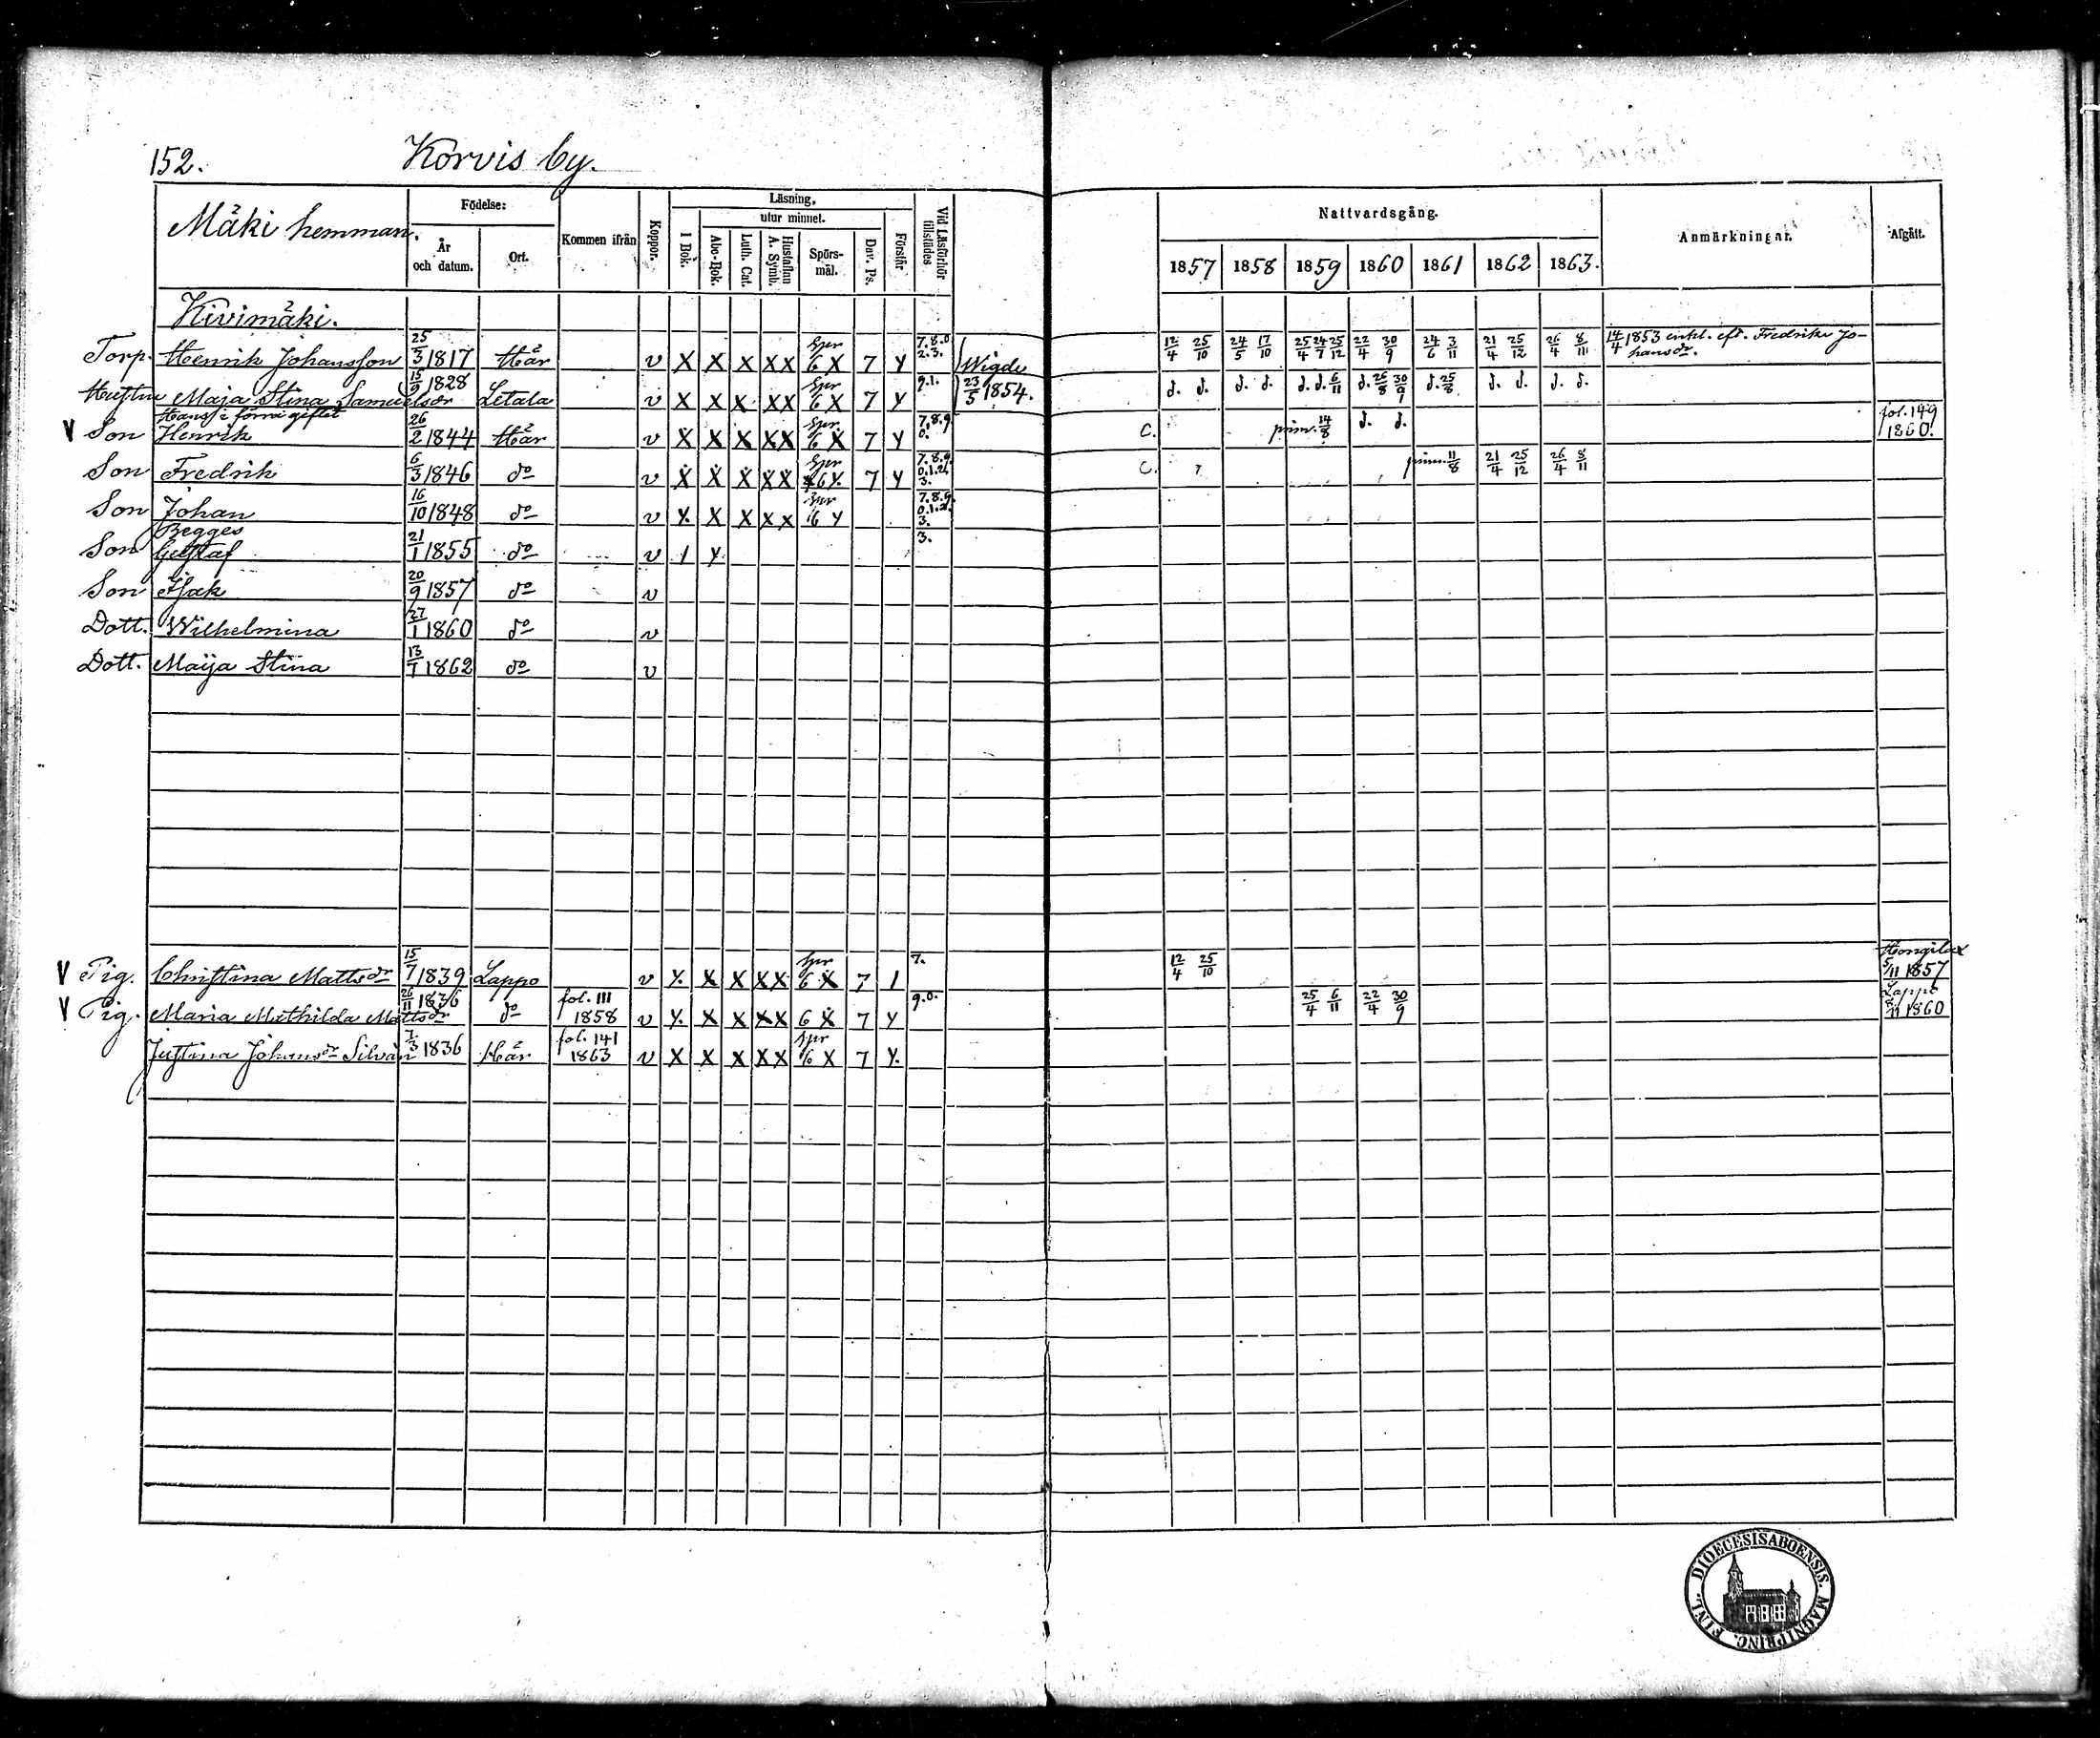 152. Korvis by.
Mäki hemman.
Födelse:
År och datum.
Ort.
Kommen ifrån
Koppor.
Läsning,
I Bok.
utur minnet.
Abc-Bok.
Luth. Cat.
Hustaflan A. Symb.
Spörs-mål.
Dav. Ps.
Förstår
Vid Läsförhör tillstädes
Nattvardsgång.
1857 1858 1859 1860 1861 1862 1863.
Anmärkningar.
Afgått.
Kivimäki.
Torp. Henrik Johansson 25/3 1817 Här v X X X X X Spr 6 X 7 Y 7.8.0 2.3. Wigde 12/4 25/10 24/5 17/10 25/4 24/7 25/12 22/4 30/9 24/6 3/11 21/4 25/12 26/4 8/11 14/4 1853 enkl. eft. Fredrika Jo-
hansdr.
Hustru Maja Stina Samuelsdr 15/9 1828 Letala v X X X X X Spr 6 X 7 Y 9.1. 23/5 1854. d. d. d. d. d. d. 6/11 d. 26/8 30/9 d. 25/8 d. d. d. d.
Hans i förra giftet
V Son Henrik 26/2 1844 Här v X X X X X Spr 6 X 7 Y 7.8.9 0. C. prim. 14/8 d. d. fol. 149 1860.
Son Fredrik 6/3 1846 do v X X X X X Spr 6 Y. 7 Y 7.8.9. 0.1.2. 3. C. prim. 11/8 21/4 25/12 26/4 8/11
Son Johan 16/10 1848 do v Y. X X X X Spr 6 Y 7.8.9. 0.1.2. 3.
Begges
Son Gustaf 21/1 1855 do v 1 Y 3.
Son Isak 20/9 1857 do v
Dott. Wilhelmina 27/1 1860 do v
Dott. Maija Stina 13/1 1862 do v
V Pig. Christina Mattsdr 15/7 1839 Lappo v Y. X X X X Spr 6 X 7 1 7. 12/4 25/10 5/11 1857
V Pig. Maria Mathilda Mattsdr 26/11 1836 do fol. 111 1858 v Y. X X X X 6 X 7 Y 9.0. 25/4 6/11 22/4 30/9 Lappo 8/11 1860
Justina Johansdr Silvän 7/3 1836 Här fol. 141 1863 v X X X X X Spr 6 X 7 Y.
DIOECESIS ABOENSIS. MAGNI PRINC. FINL.